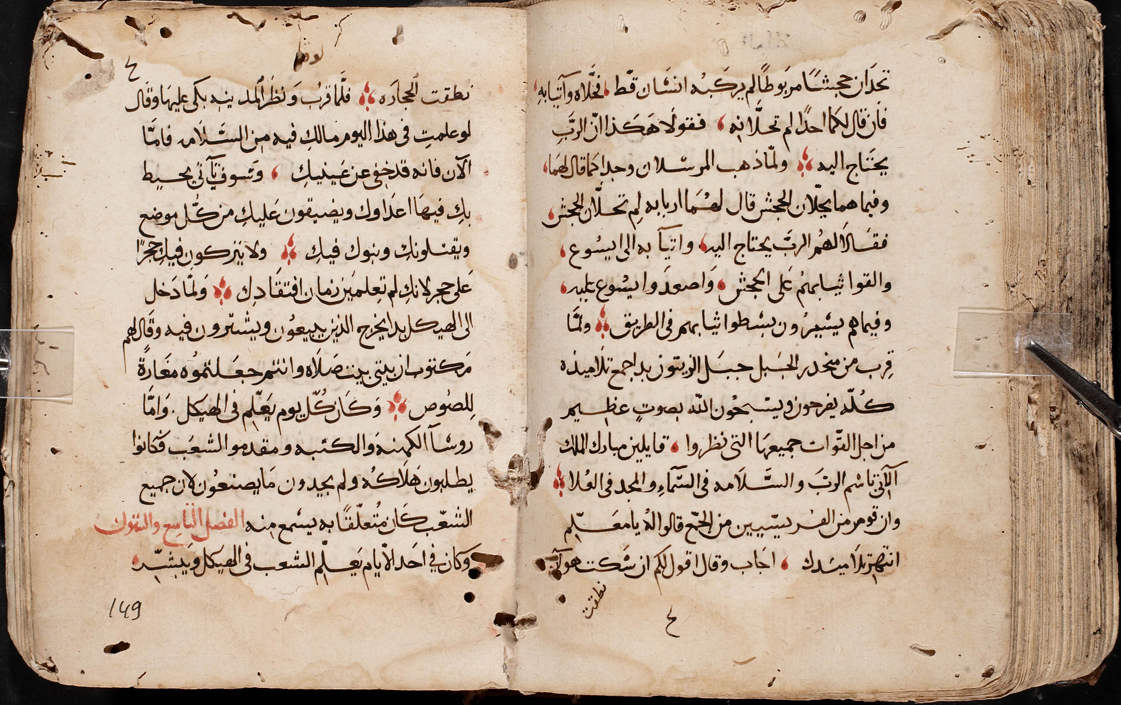 تجدان جحشًا مربوطًا لم يركبه انسان قط فحلاه وآتيا به
فان قال لكما احدًا لم تحلانه فقولا هكذا ان الرب
يحتاج اليه ولما ذهب المرسلان وجدا كما قال لهما
وفيما هما يحلان الجحش قال لهما اربابه لم تحلان الجحش
فقالا لهم الرب يحتاج اليه واتيا به الى ايسوع
والقوا ثيابهم على الجحش واصعدوا ايسوع عليه
وفيما هم يسيرون بسطوا ثيابهم في الطريق ولما
قرب من منحدر الجبل جبل الزيتون بدا جمع تلاميذه
كله يفرحون ويسبحون الله بصوت عظيم
من اجل القوات جميعها التي نظروا قايلين مبارك الملك
الآتي باسم الرب والسلامه في السماء والمجد في العلا
وان قوم من الفريسيين من الجمع قالوا له يا معلم
انتهر تلاميدك اجاب وقال اقول لكم ان سكت هولآ
نطقت
٤
لوقا
٤
نطقت الحجاره فلما قرب ونظر المدينه بكى عليها وقال
لو علمتِ في هذا اليوم مالك فيه من السلامه فامّا
الآن فانه قد خفي عن عينيك وسوف تآتي يحيط
بك فيها اعداوك ويضيقون عليك من كل موضع
ويقتلونك وبنوك فيك ولا يتركون فيك حجرًا
على حجر لانك لم تعلمين زمان افتقادك ولما دخل
الى الهيكل بدا يخرج الذين يبيعون ويشترون فيه وقال لهم
مكتوب ان بيتي بيت صلاه وانتم جعلتموه مغارةً
للصوص وكان كل يوم يعلم في الهيكل. وامّا
روسآ الكهنه والكتبه ومقدمو الشعب فكانوا
يطلبون هلاكه ولم يجدون ما يصنعون لان جميع
الشعب كان متعلقًا به يسمع منه الفصل التاسع والستون
وكان في احد الايام يعلم الشعب في الهيكل ويبشر
149